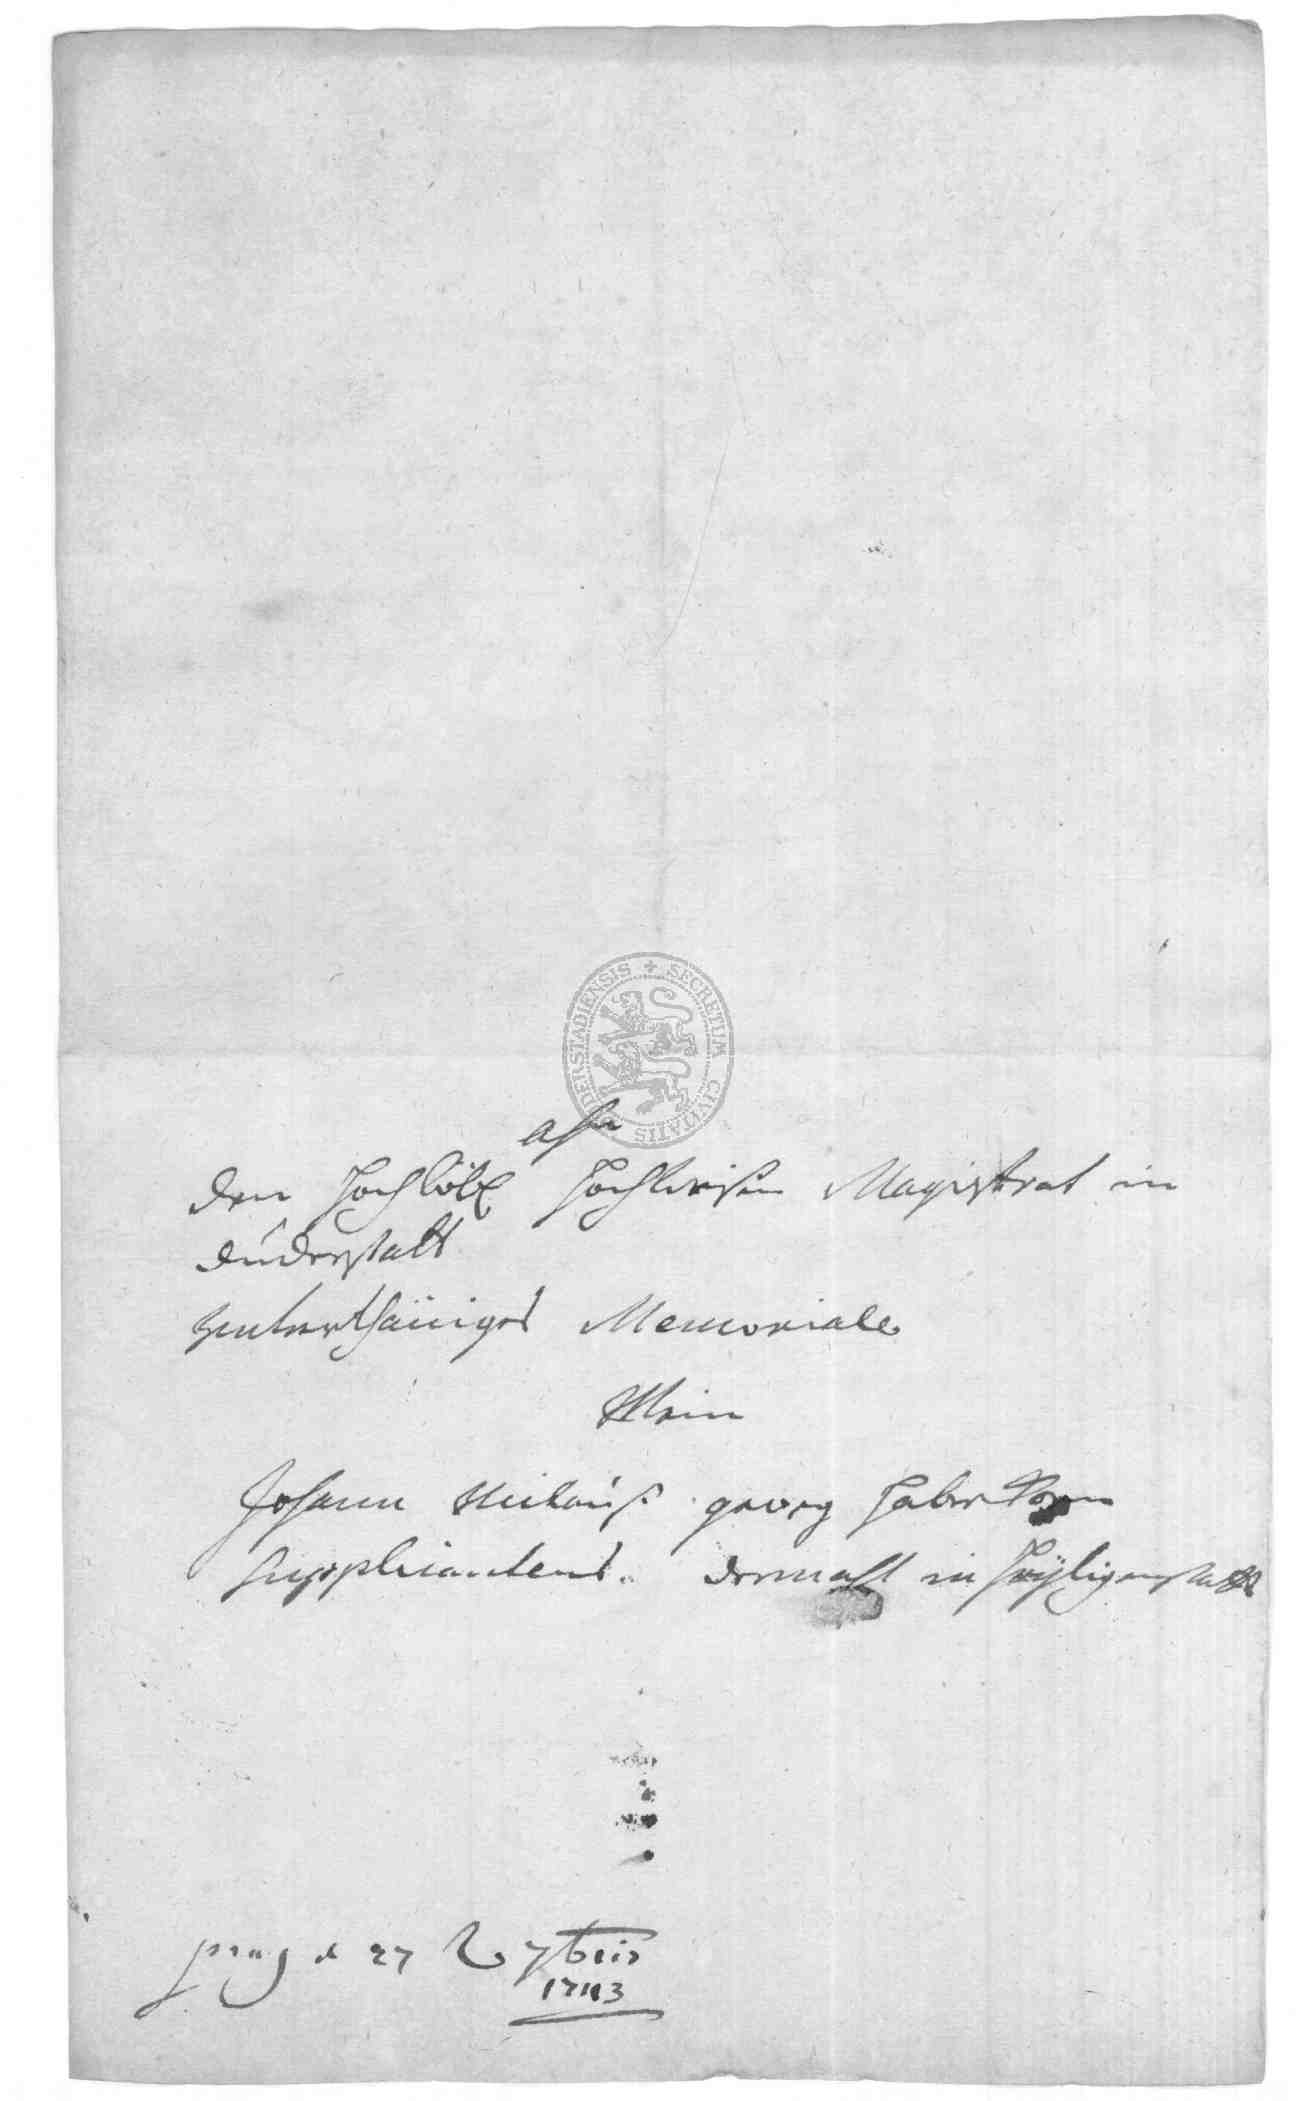 SECRETUM CIVITATIS DUDERSTADIENSIS
Ahn
den Hochlöbl Hochweisen Magistrat in
duderstatt
unterthäniges Memoriale
Mein
Johann Niclauß georg Haberkorn
Supplicantens. dermahl in Heyligenstatt
d 27 7bris
1743